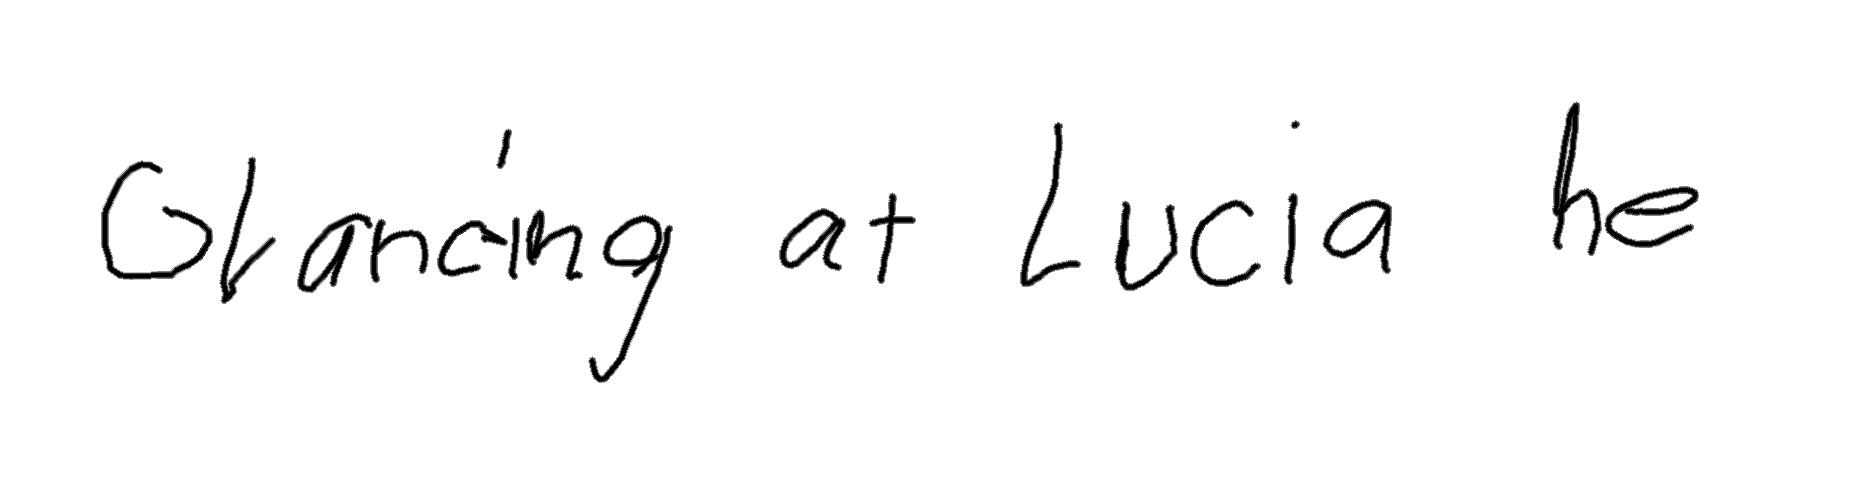 Glancing at Lucia he